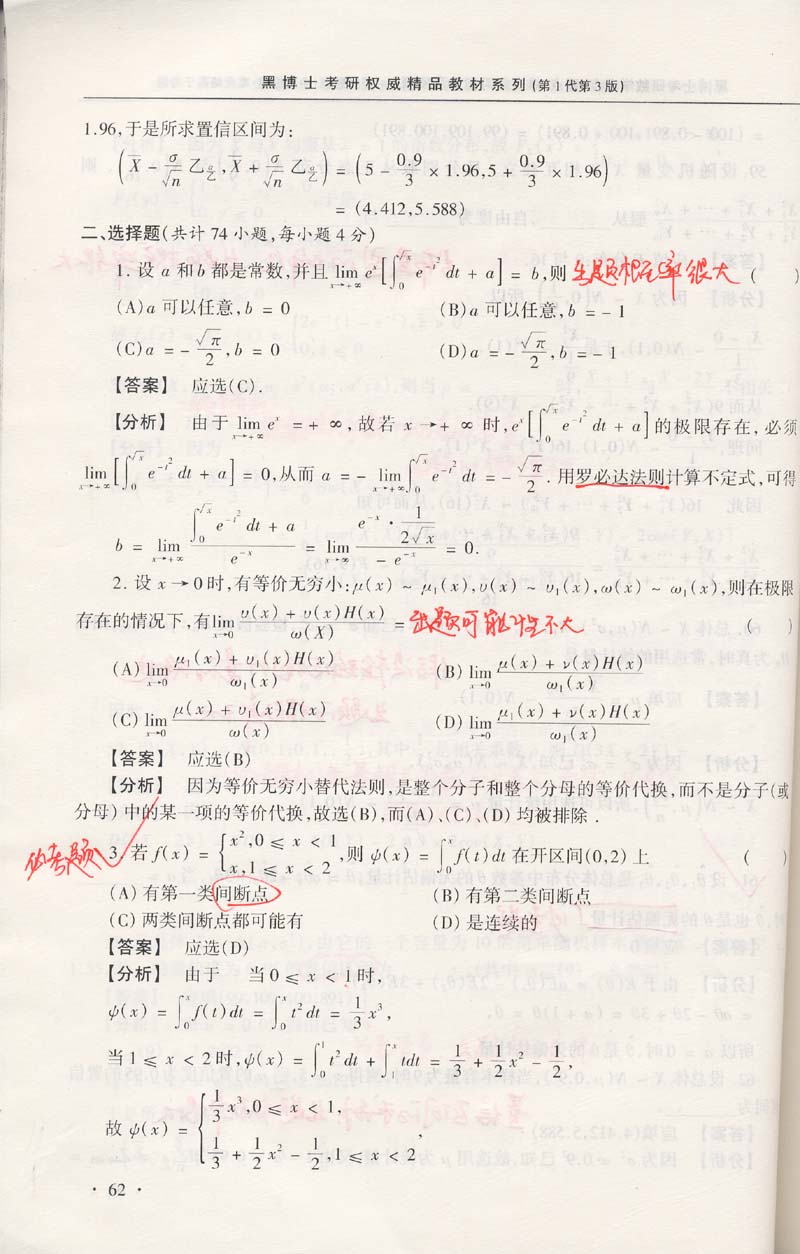 黑博士考研权威精品教材系列(第1代第3版)
1.96,于是所求置信区间为:
(X̅ - σ/√n 乙_{α/乙}, X̅ + σ/√n 乙_{α/乙}) = (5 - 0.9/3 × 1.96, 5 + 0.9/3 × 1.96)
= (4.412,5.588)
二、选择题(共计74小题,每小题4分)
1. 设 a 和 b 都是常数,并且 lim_{x→+∞} e^x[∫_0^{√x} e^{-t²} dt + a] = b,则 出题概率很大 ( )
(A)a 可以任意,b = 0 (B)a 可以任意,b = -1
(C)a = -√π/2,b = 0 (D)a = -√π/2,b = -1
【答案】 应选(C).
【分析】 由于 lim_{x→+∞} e^x = +∞,故若 x→+∞ 时,e^x[∫_0^{√x} e^{-t²} dt + a]的极限存在,必须
lim_{x→+∞}[∫_0^{√x} e^{-t²} dt + a] = 0,从而 a = -lim_{x→+∞}∫_0^{√x} e^{-t²} dt = -√π/2. 用罗必达法则计算不定式,可得
b = lim_{x→+∞} (∫_0^{√x} e^{-t²} dt + a)/e^{-x} = lim_{x→+∞} (e^{-x}·1/(2√x))/(-e^{-x}) = 0.
2. 设 x→0 时,有等价无穷小:μ(x) ~ μ₁(x),υ(x) ~ υ₁(x),ω(x) ~ ω₁(x),则在极限
存在的情况下,有lim_{x→0} (υ(x) + υ(x)H(x))/ω(X) = 出题可能性不大 ( )
(A) lim_{x→0} (μ₁(x) + υ₁(x)H(x))/ω₁(x) (B) lim_{x→0} (μ(x) + ν(x)H(x))/ω₁(x)
(C) lim_{x→0} (μ(x) + υ₁(x)H(x))/ω(x) (D) lim_{x→0} (μ₁(x) + ν(x)H(x))/ω₁(x)
【答案】 应选(B)
【分析】 因为等价无穷小替代法则,是整个分子和整个分母的等价代换,而不是分子(或
分母)中的某一项的等价代换,故选(B),而(A)、(C)、(D)均被排除.
必考题
3. 若 f(x) = {x²,0 ≤ x < 1 x,1 ≤ x < 2,则 ψ(x) = ∫_0^x f(t)dt 在开区间(0,2)上 ( )
(A) 有第一类间断点 (B) 有第二类间断点
(C) 两类间断点都可能有 (D) 是连续的
【答案】 应选(D)
【分析】 由于 当 0 ≤ x < 1 时,
ψ(x) = ∫_0^x f(t)dt = ∫_0^x t²dt = 1/3 x³,
当 1 ≤ x < 2 时,ψ(x) = ∫_0^1 t²dt + ∫_1^x tdt = 1/3 + 1/2 x² - 1/2,
故 ψ(x) = {1/3 x³,0 ≤ x < 1, 1/3 + 1/2 x² - 1/2,1 ≤ x < 2,
· 62 ·